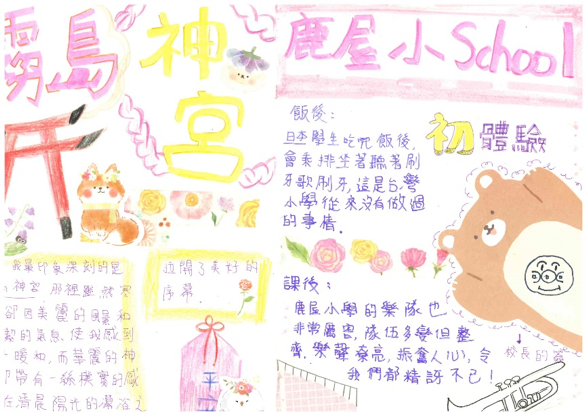 霧島
神
宮
我最印象深刻的是
神宮,那裡雖然寒
卻因美麗的風景和
潔的氣息,使我感到
一暖和,而華麗的神
帶有一絲樸實的感
在清晨陽光的沐浴之
拉開了美好的
序幕。
鹿屋小School
初體驗
飯後:
日本學生吃完飯後,
會乖排坐著聽著刷
牙歌刷牙,這是台灣
小學從來沒有做過
的事情。
課後:
鹿屋小學的樂隊也
非常厲害,隊伍多變但整
齊,樂聲嘹亮,振奮人心,令
我們都精訝不已!
校長的簽